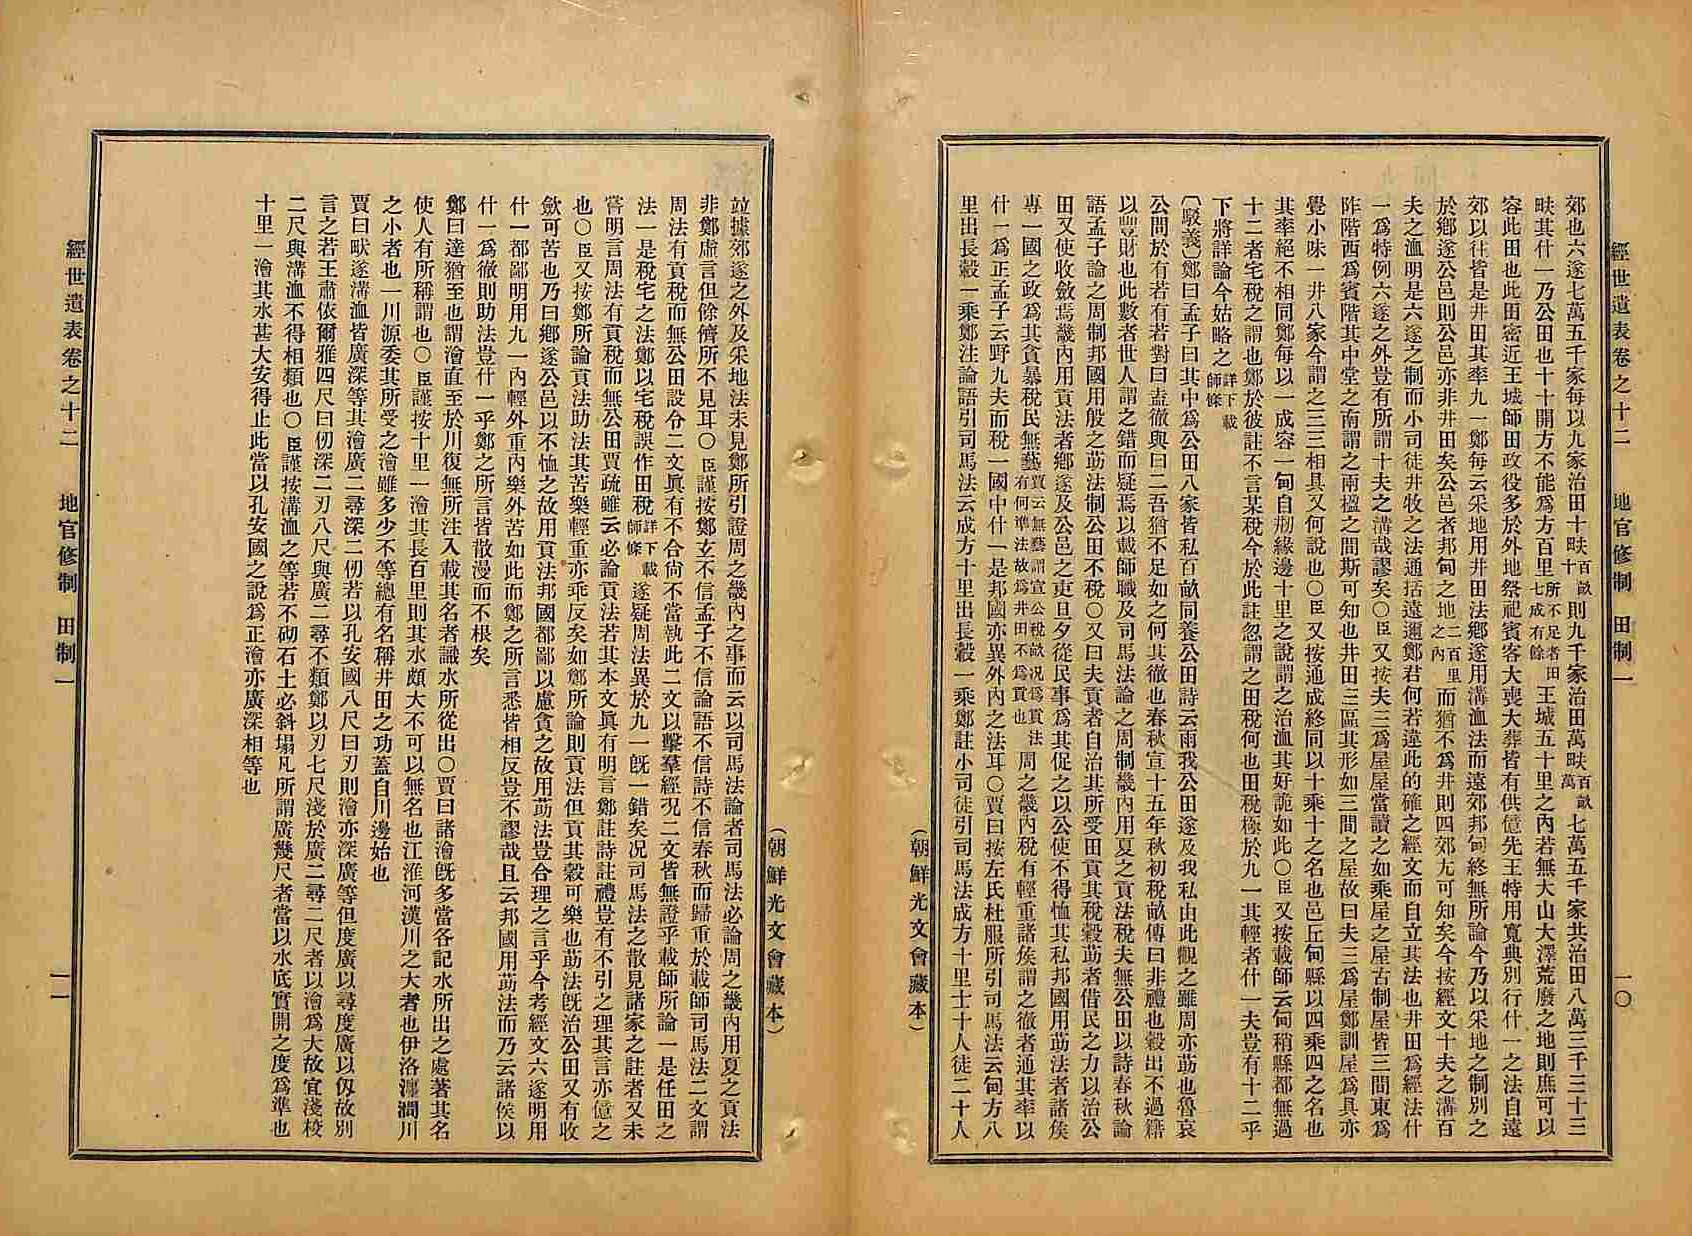 經世遺表卷之十二　地官修制　田制一
一〇
郊也六遂七萬五千家每以九家治田十畉百畝十則九千家治田萬畉百畝萬七萬五千家共治田八萬三千三十三
畉其什一乃公田也十十開方不能爲方百里所不足者田七成有餘王城五十里之內若無大山大澤荒廢之地則庶可以
容此田也此田密近王城師田政役多於外地祭祀賓客大喪大葬皆有供億先王特用寬典別行什一之法自遠
郊以往皆是井田其率九一鄭每云采地用井田法鄕遂用溝洫法而遠郊邦甸終無所論今乃以采地之制別之
於鄕遂公邑則公邑亦非井田矣公邑者邦甸之地二百里之內而猶不爲井則四郊尤可知矣今按經文十夫之溝百
夫之洫明是六遂之制而小司徒井牧之法通括遠邇鄭君何若違此的確之經文而自立其法也井田爲經法什
一爲特例六遂之外豈有所謂十夫之溝哉謬矣〇臣又按夫三爲屋屋當讀之如乘屋之屋古制屋皆三間東爲
阼階西爲賓階其中堂之南謂之兩楹之間斯可知也井田三區其形如三間之屋故曰夫三爲屋鄭訓屋爲具亦
覺小味一井八家今謂之三三相具又何說也〇臣又按通成終同以十乘十之名也邑丘甸縣以四乘四之名也
其率絕不相同鄭每以一成容一甸自刱緣邊十里之說謂之治洫其好詭如此〇臣又按載師云甸稍縣都無過
十二者宅稅之謂也鄭於彼註不言某稅今於此註忽謂之田稅何也田稅極於九一其輕者什一夫豈有十二乎
下將詳論今姑略之詳下載師條
〔駁義〕鄭曰孟子曰其中爲公田八家皆私百畝同養公田詩云雨我公田遂及我私由此觀之雖周亦莇也魯哀
公問於有若有若對曰盍徹與曰二吾猶不足如之何其徹也春秋宣十五年秋初稅畝傳曰非禮也穀出不過籍
以豐財也此數者世人謂之錯而疑焉以載師職及司馬法論之周制畿內用夏之貢法稅夫無公田以詩春秋論
語孟子論之周制邦國用殷之莇法制公田不稅〇又曰夫貢者自治其所受田貢其稅穀莇者借民之力以治公
田又使收斂焉畿內用貢法者鄕遂及公邑之吏旦夕從民事爲其促之以公使不得恤其私邦國用莇法者諸侯
專一國之政爲其貪暴稅民無藝賈云無藝謂宣公稅畝况爲貢法有何準法故爲井田不爲貢也周之畿內稅有輕重諸侯謂之徹者通其率以
什一爲正孟子云野九夫而稅一國中什一是邦國亦異外內之法耳〇賈曰按左氏杜服所引司馬法云甸方八
里出長轂一乘鄭注論語引司馬法云成方十里出長轂一乘鄭註小司徒引司馬法成方十里士十人徒二十人
（朝鮮光文會藏本）
（朝鮮光文會藏本）
竝據郊遂之外及采地法未見鄭所引證周之畿內之事而云以司馬法論者司馬法必論周之畿內用夏之貢法
非鄭虛言但餘儕所不見耳〇臣謹按鄭玄不信孟子不信論語不信詩不信春秋而歸重於載師司馬法二文謂
周法有貢稅而無公田設令二文眞有不合尙不當執此二文以擊羣經况二文皆無證乎載師所論一是任田之
法一是稅宅之法鄭以宅稅誤作田稅詳下載師條遂疑周法異於九一旣一錯矣况司馬法之散見諸家之註者又未
嘗明言周法有貢稅而無公田賈疏雖云必論貢法若其本文眞有明言鄭註詩註禮豈有不引之理其言亦億之
也〇臣又按鄭所論貢法助法其苦樂輕重亦乖反矣如鄭所論則貢法但貢其穀可樂也莇法旣治公田又有收
斂可苦也乃曰鄕遂公邑以不恤之故用貢法邦國都鄙以慮貪之故用莇法豈合理之言乎今考經文六遂明用
什一都鄙明用九一內輕外重內樂外苦如此而鄭之所言悉皆相反豈不謬哉且云邦國用莇法而乃云諸侯以
什一爲徹則助法豈什一乎鄭之所言皆散漫而不根矣
鄭曰達猶至也謂澮直至於川復無所注入載其名者識水所從出〇賈曰諸澮旣多當各記水所出之處著其名
使人有所稱謂也〇臣謹按十里一澮其長百里則其水頗大不可以無名也江淮河漢川之大者也伊洛瀍澗川
之小者也一川源委其所受之澮雖多少不等總有名稱井田之功蓋自川邊始也
賈曰畎遂溝洫皆廣深等其澮廣二尋深二仞若以孔安國八尺曰刃則澮亦深廣等但度廣以尋度廣以仭故別
言之若王肅依爾雅四尺曰仞深二刃八尺與廣二尋不類鄭以刃七尺淺於廣二尋二尺者以澮爲大故宜淺校
二尺與溝洫不得相類也〇臣謹按溝洫之等若不砌石土必斜塌凡所謂廣幾尺者當以水底實開之度爲準也
十里一澮其水甚大安得止此當以孔安國之說爲正澮亦廣深相等也
經世遺表卷之十二　地官修制　田制一
一一